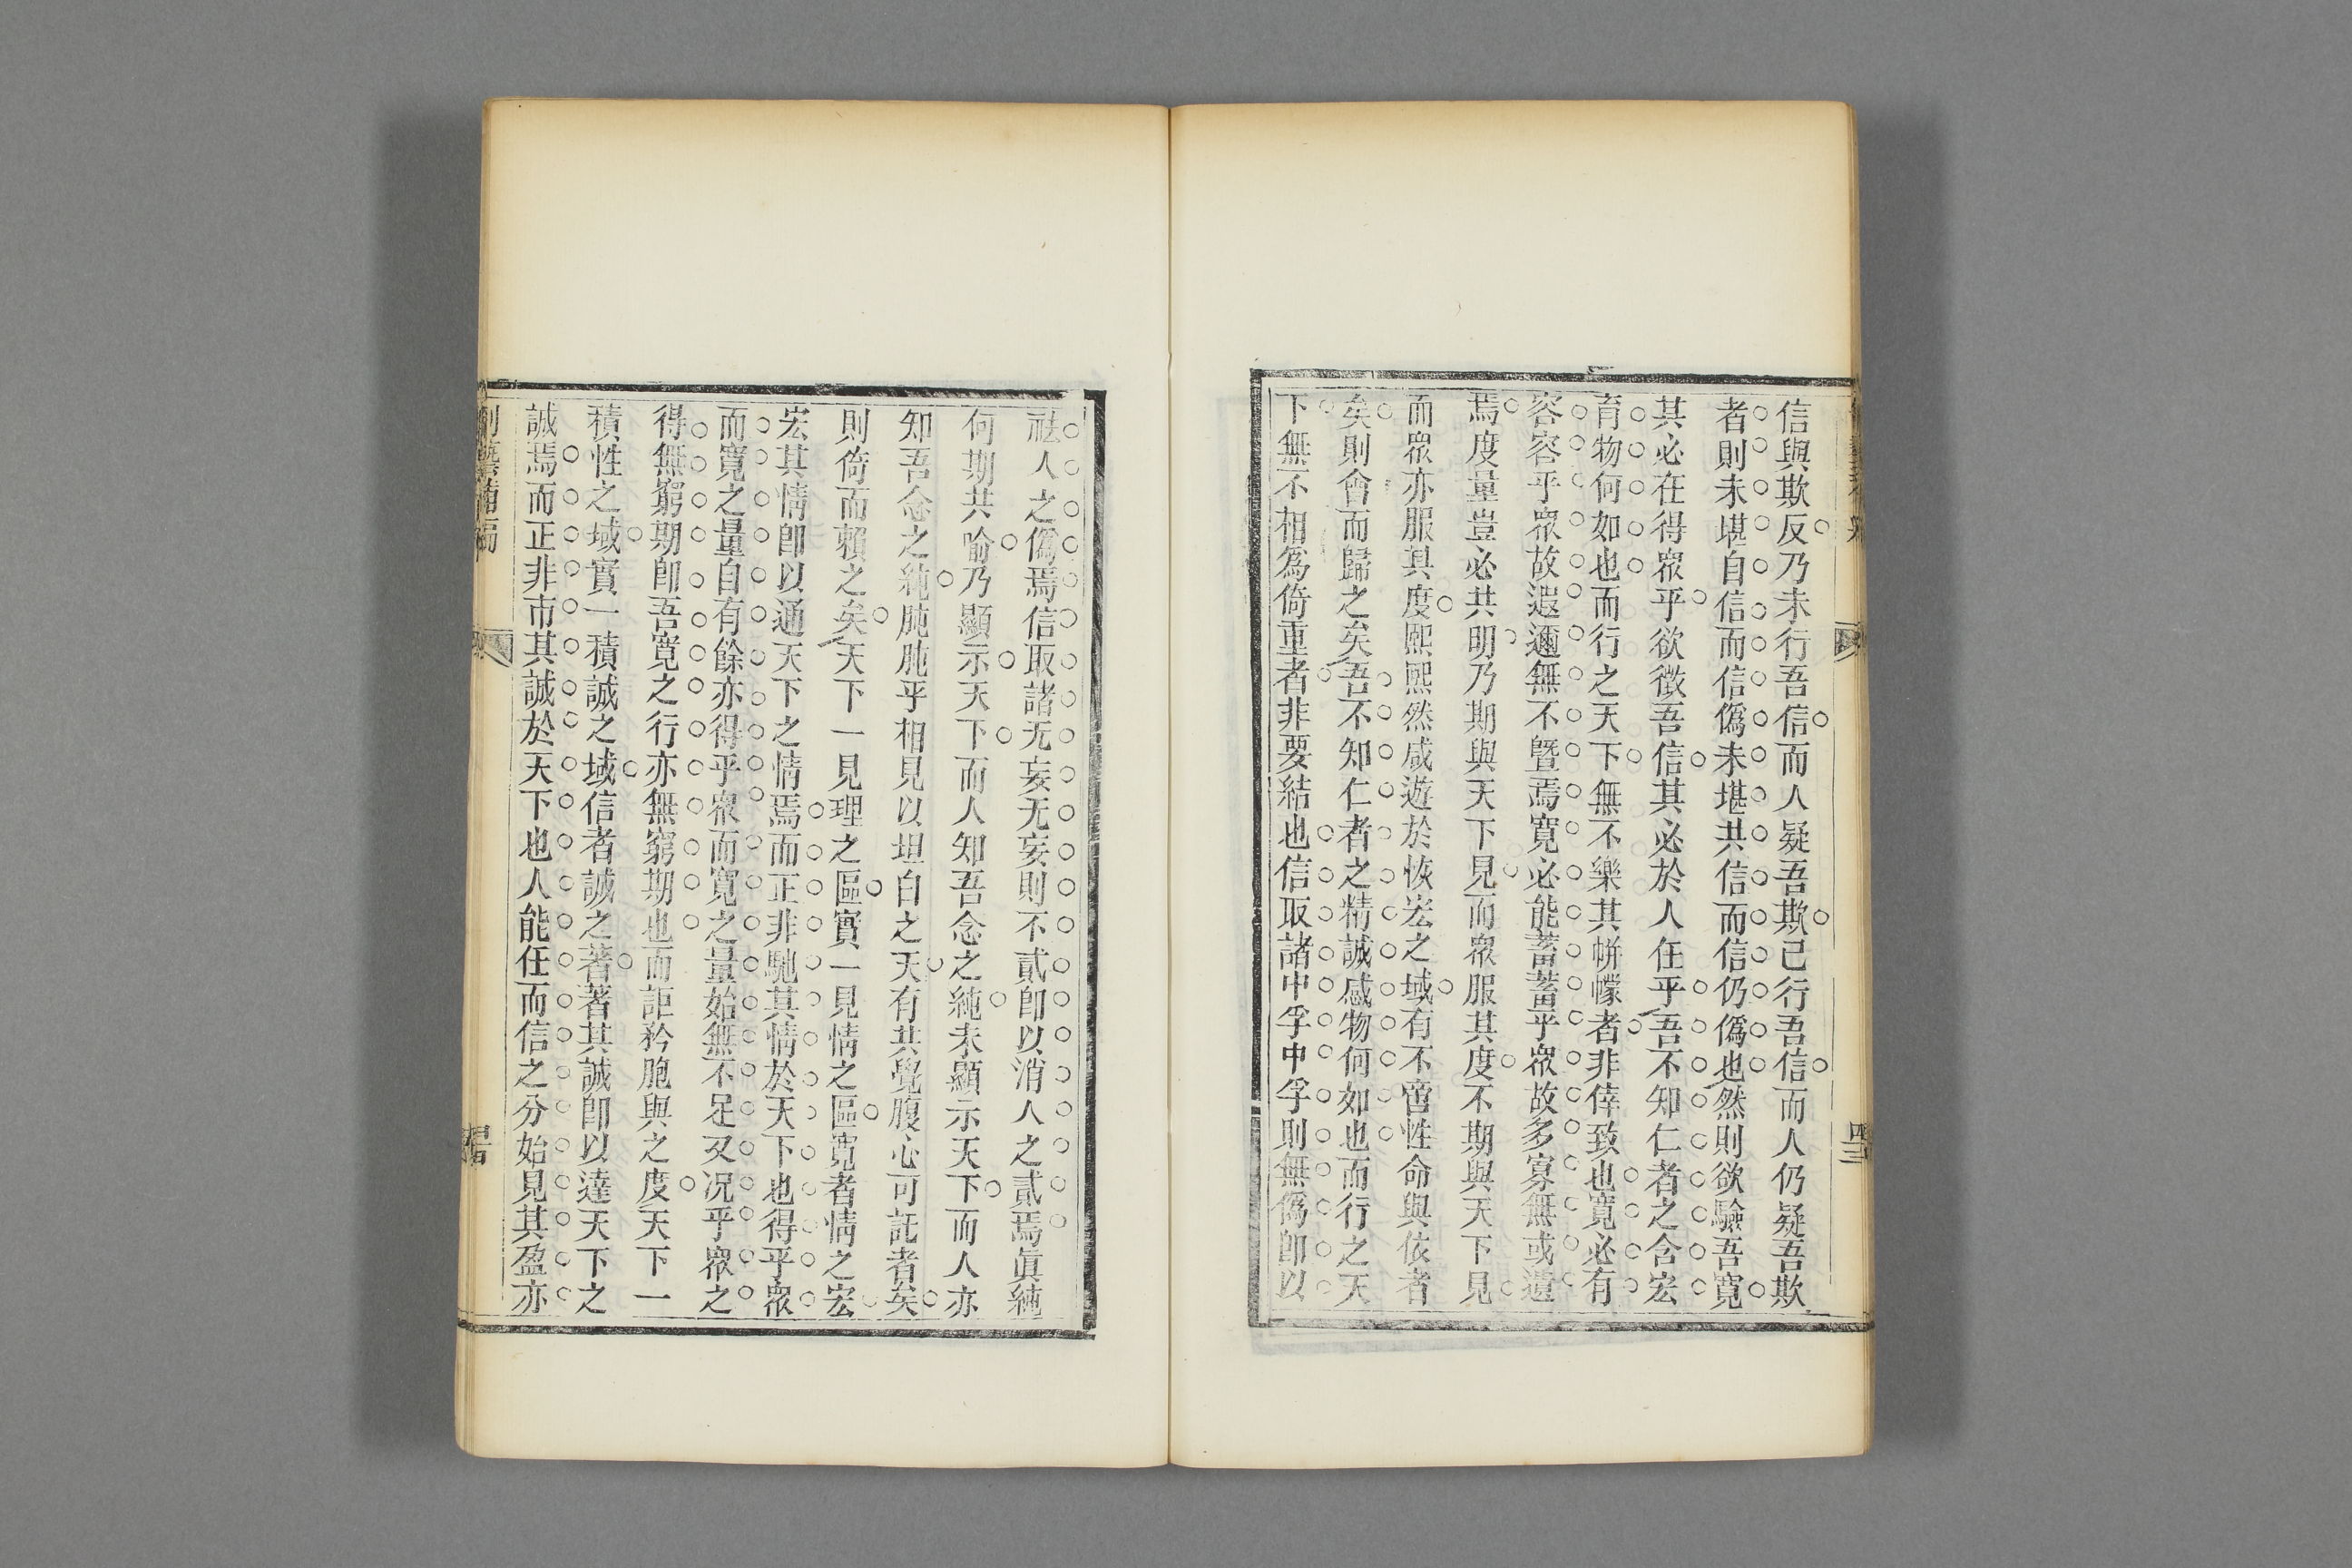 信與欺反乃未行吾信而人疑吾欺己行吾信而人仍疑吾欺
者則未堪自信而信僞未堪共信而信仍僞也然則欲驗吾寬
其必在得眾乎欲徵吾信其必於人任乎吾不知仁者之含宏
育物何如也而行之天下無不樂其帡幪者非倖致也寬必有
容容乎眾故遐邇無不曁焉寬必能蓄蓄乎眾故多寡無或遺
焉度量豈必共明乃期與天下見而眾服其度不期與天下見
而眾亦服其度熙熙然咸遊於恢宏之域有不啻性命與依者
矣則會而歸之矣吾不知仁者之精誠感物何如也而行之天
下無不相為倚重者非要結也信取諸中孚中孚則無僞卽以
祛人之僞焉信取諸无妄无妄則不貳卽以消人之貳焉眞純
何期共喻乃顯示天下而人知吾念之純未顯示天下而人亦
知吾念之純肫肫乎相見以坦白之天有共覺腹心可託者矣
則倚而賴之矣天下一見理之區實一見情之區寬者情之宏
宏其情卽以通天下之情焉而正非馳其情於天下也得乎眾
而寬之量自有餘亦得乎眾而寬之量始無不足又况乎眾之
得無窮期卽吾寬之行亦無窮期也而詎矜胞與之度天下一
積性之域實一積誠之域信者誠之著著其誠卽以達天下之
誠焉而正非市其誠於天下也人能任而信之分始見其盈亦